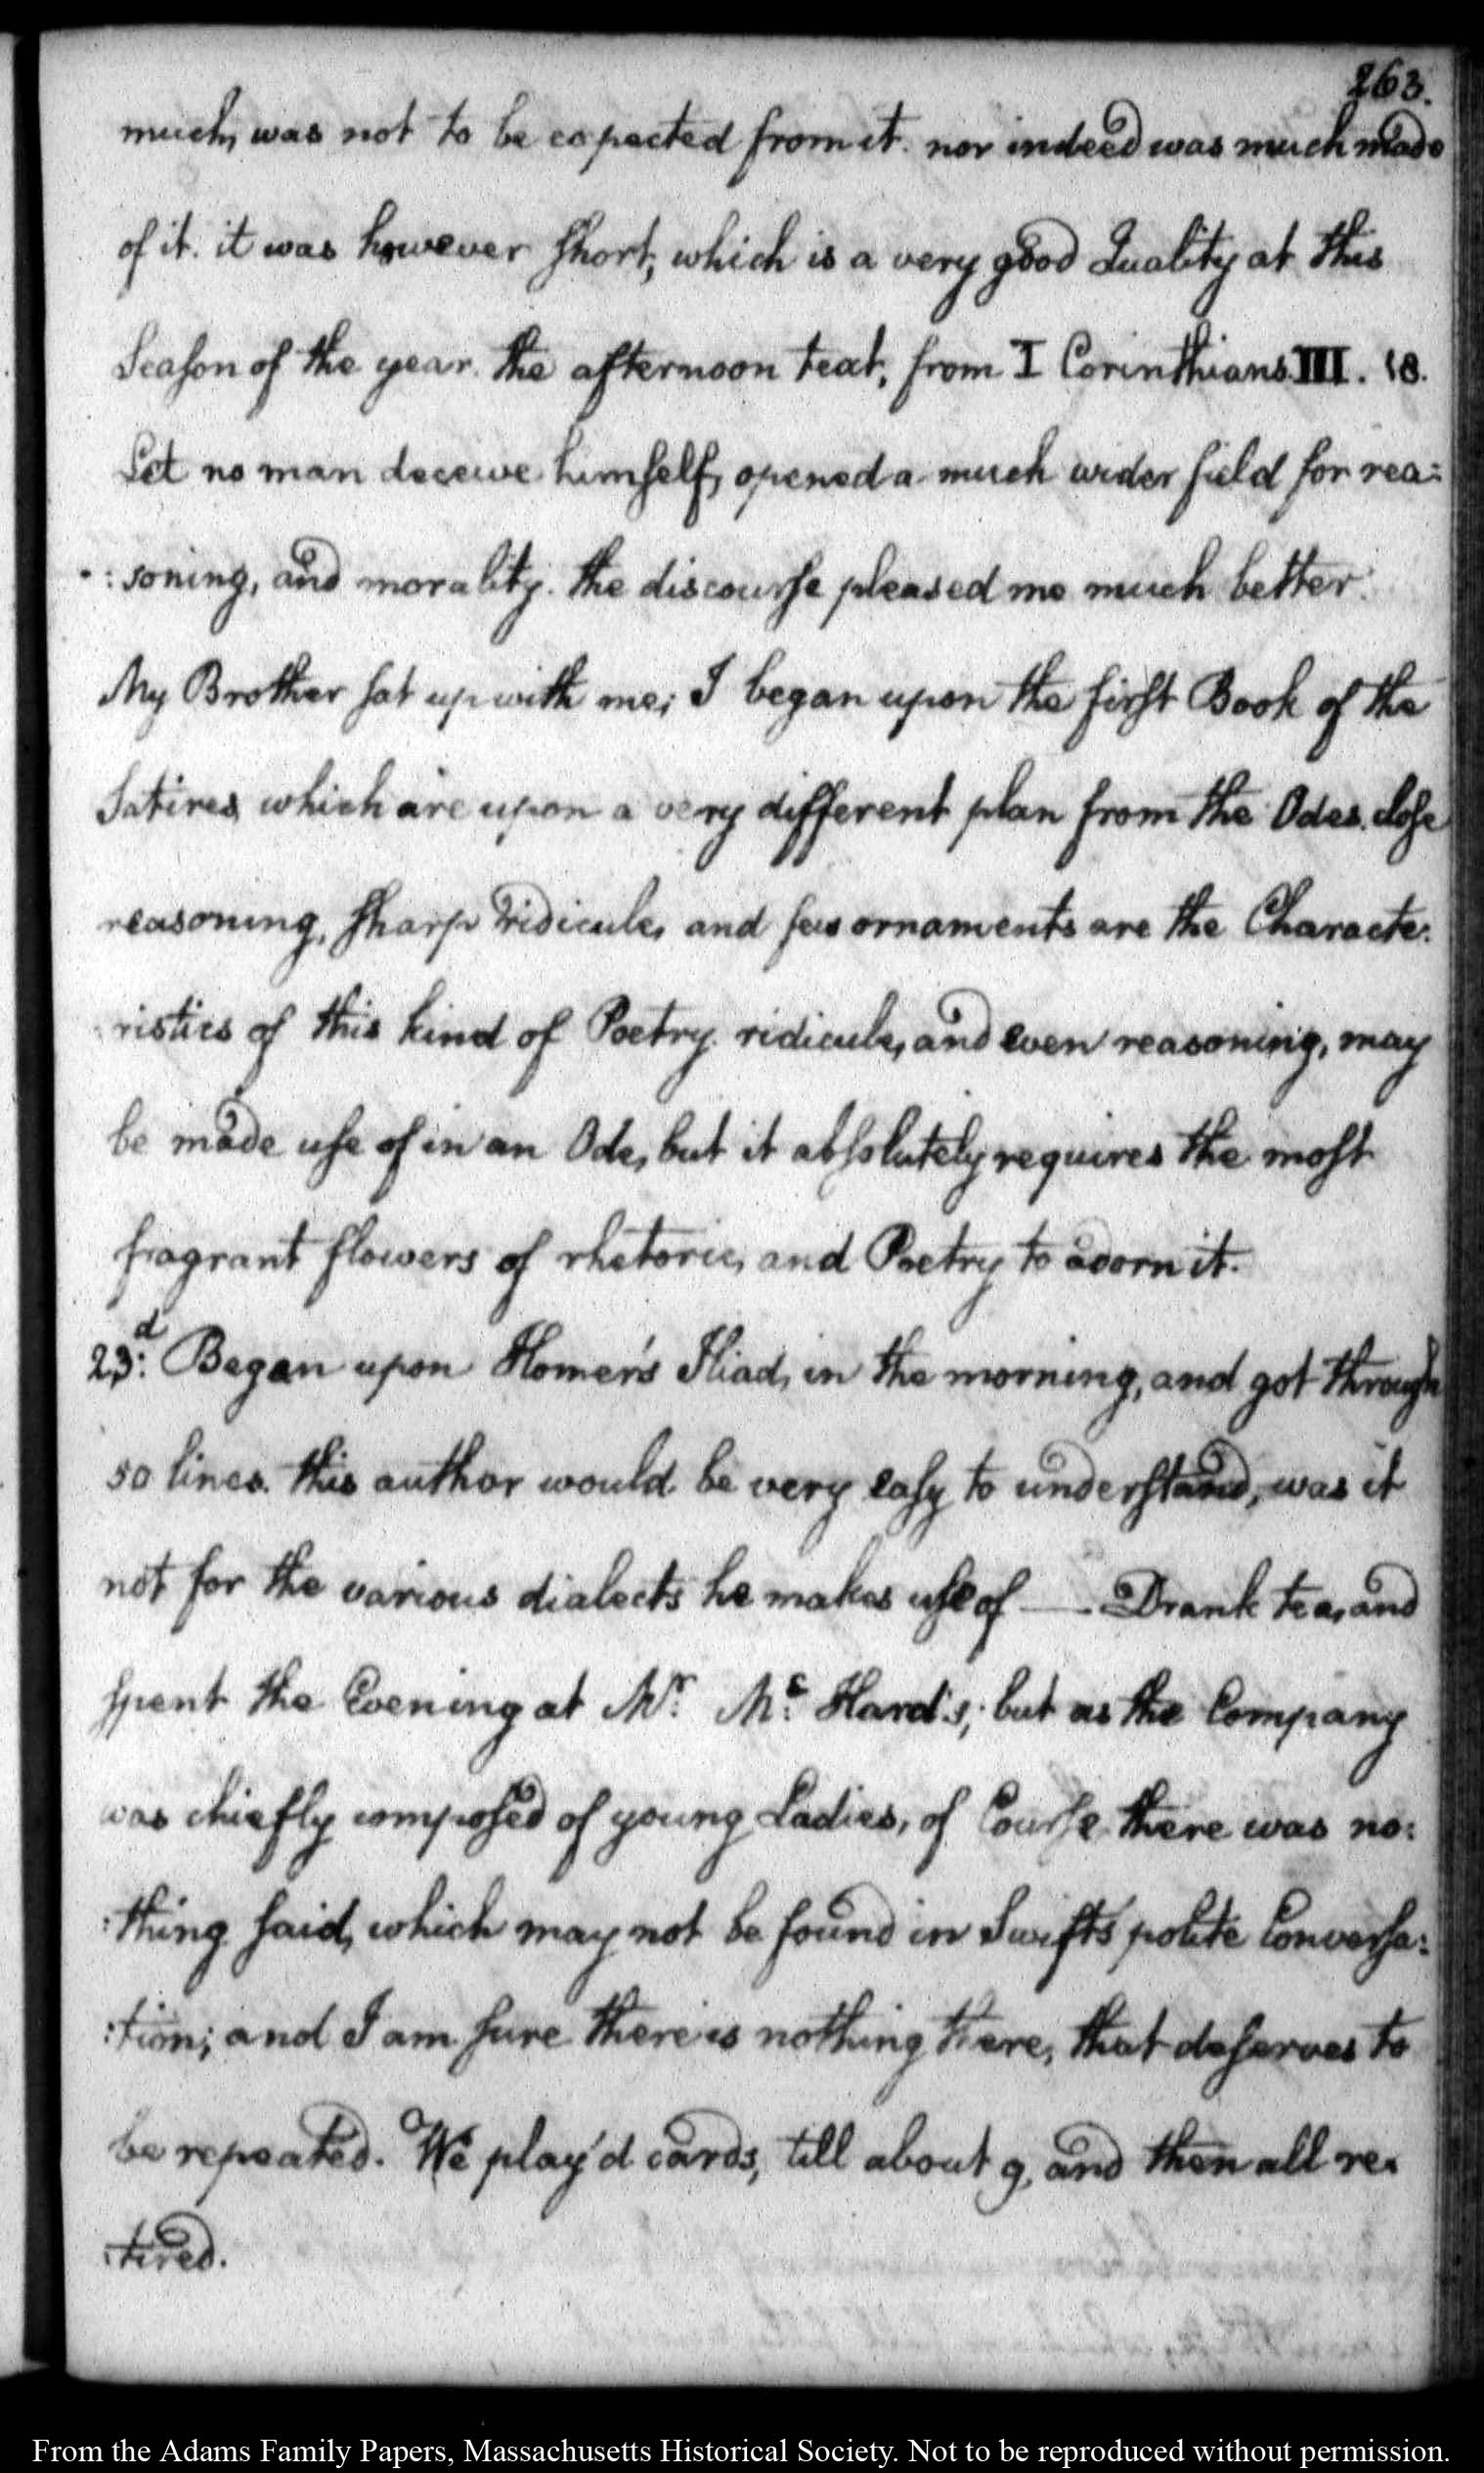 263.
much, was not to be expected from it. nor indeed was much made
of it. it was however short, which is a very good Quality at this
Season of the year. the afternoon text, from I Corinthians III. 18.
Let no man deceive himself, opened a much wider field for rea:
:soning, and morality. the discourse pleased me much better.
My Brother sat up with me; I began upon the first Book of the
Satires, which are upon a very different plan from the Odes. close
reasoning, sharp ridicule, and few ornaments are the Characte:
ristics of this kind of Poetry. ridicule, and even reasoning, may
be made use of in an Ode, but it absolutely requires the most
fragrant flowers of rhetoric, and Poetry to adorn it.
23d: Began upon Homer's Iliad, in the morning, and got through
50 lines. this author would be very easy to understand, was it
not for the various dialects he makes use of — Drank tea, and
spent the Evening at Mr. Mc: Hard's; but as the Company
was chiefly composed of young Ladies, of Course there was no:
:thing said, which may not be found in Swift's polite Conversa:
:tion; and I am sure there is nothing there, that deserves to
be repeated. We play'd cards, till about 9, and then all re:
:tired.
From the Adams Family Papers, Massachusetts Historical Society. Not to be reproduced without permission.